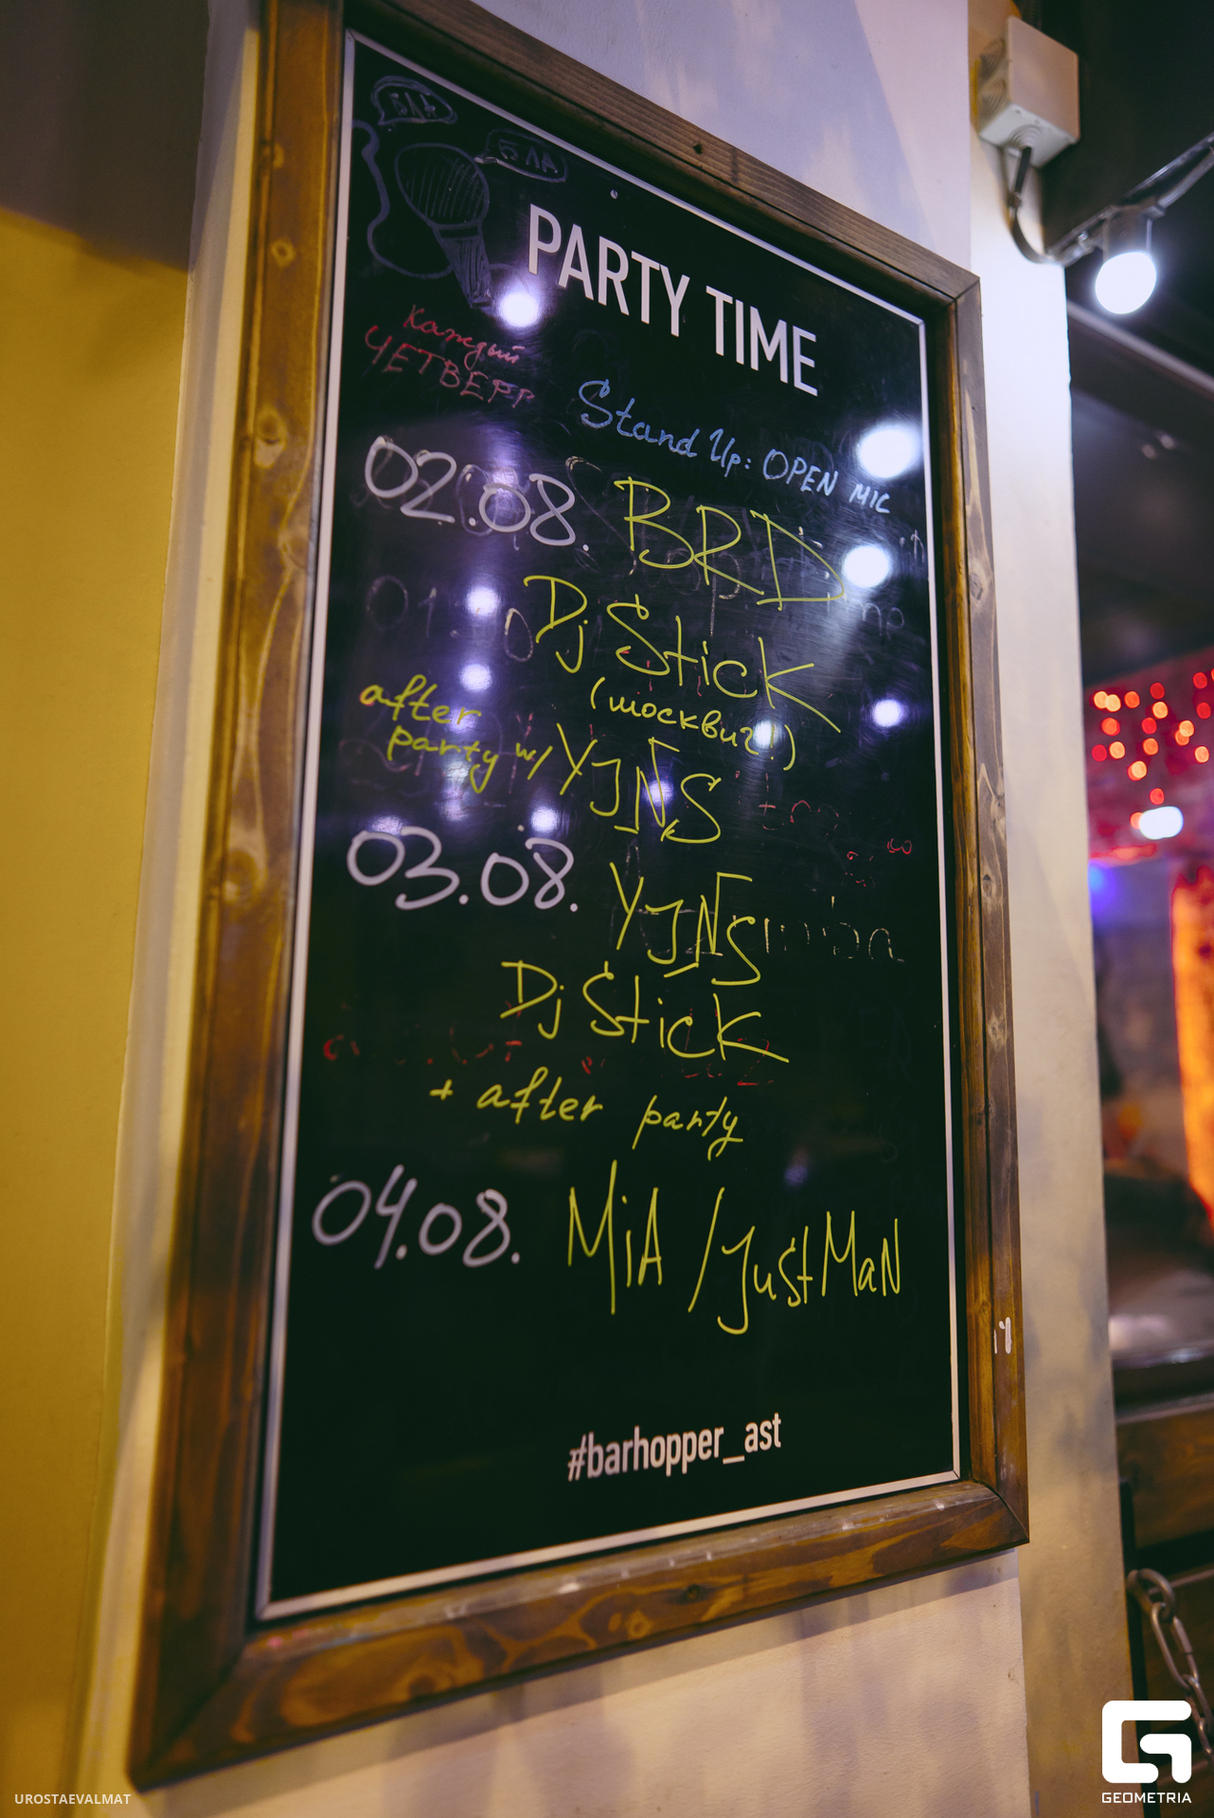 БЛА
БЛА
PARTY TIME
Каждый
ЧЕТВЕРГ
Stand Up: OPEN MIC
02.08. BRD
Dj Stick
(москвич!)
after
party w/ YJNS
03.08. YJNS
Dj Stick
+ after party
04.08. MiA / JustMaN
#barhopper_ast
UROSTAEVALMAT
GEOMETRIA